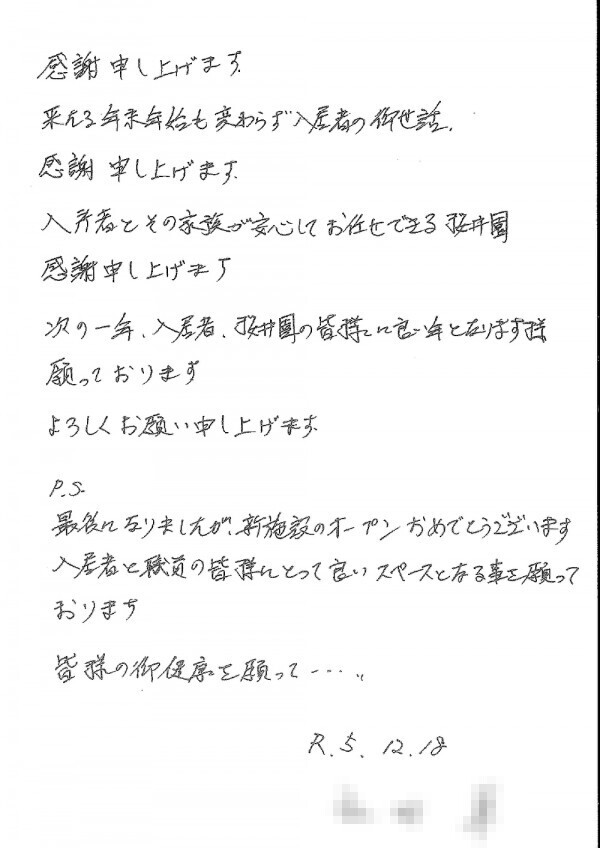 感謝申し上げます.
来える年末年始も変わらず入居者の御世話.
感謝 申し上げます.
入居者とその家族が安心してお任せできる桜井園
感謝申し上げます
次の一年、入居者、桜井園の皆様に良い年となります様
願っております
よろしくお願い申し上げます.
P.S.
最後になりましたが、新施設のオープンおめでとうございます
入居者と職員の皆様にとって良いスペースとなる事を願って
おります
皆様の御健康を願って・・・・・
R.5.12.18